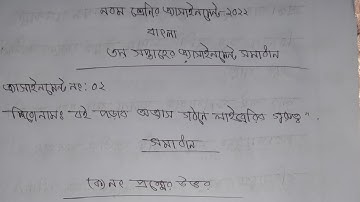 নবম শ্রেণির অ্যাসাইনমেন্ট-২০২২
বাংলা
৩য় সপ্তাহের অ্যাসাইনমেন্ট সমাধান
অ্যাসাইনমেন্ট নং: ০২
শিরোনামঃ বই পড়ার অভ্যাস গঠনে লাইব্রেরির গুরুত্ব".
সমাধান
(ক) নং প্রশ্নের উত্তর